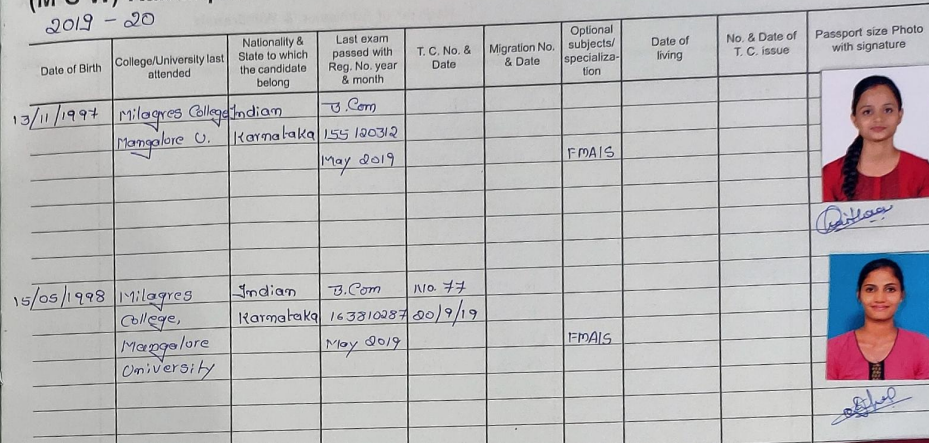 2019 - 20
Date of Birth
College/University last
attended
Nationality &
State to which
the candidate
belong
Last exam
passed with
Reg. No. year
& month
T. C. No. &
Date
Migration No.
& Date
Optional
subjects/
specializa-
tion
Date of
living
No. & Date of
T. C. issue
Passport size Photo
with signature
13/11/1997 Milagres College Indian B.Com
Mangalore U. Karnataka 155120312
May 2019 FMAIS
15/05/1998 Milagres Indian B.Com No. 77
College, Karnataka 163810287 20/9/19
Mangalore May 2019 FMAIS
University